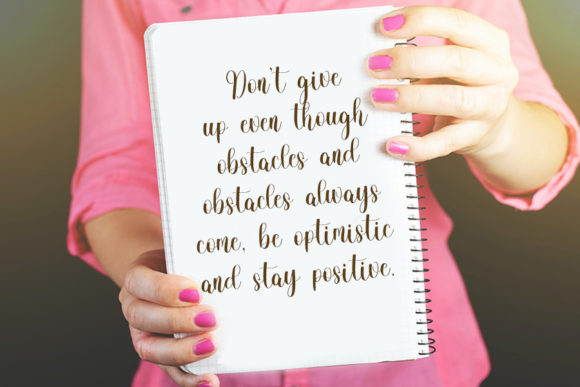 Don't give
up even though
obstacles and
obstacles always
come, be optimistic
and stay positive.